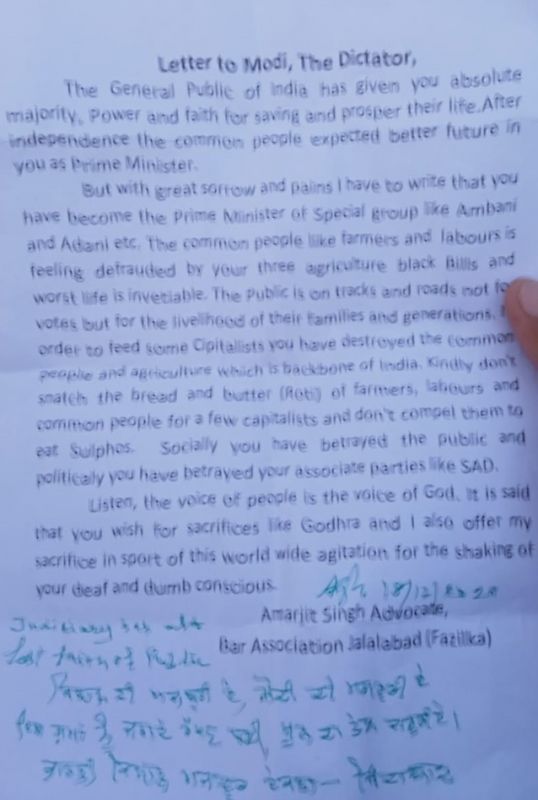 Letter to Modi, The Dictator,
The General Public of India has given you absolute
majority, Power and faith for saving and prosper their life.After
independence the common people expected better future in
you as Prime Minister.
But with great sorrow and pains I have to write that you
have become the Prime Minister of Special group like Ambani
and Adani etc. The common people like farmers and labours is
feeling defrauded by your three agriculture black Bills and
worst life is invetiable. The Public is on tracks and roads not for
votes but for the livelihood of their families and generations.
order to feed some Cipitallists you have destroyed the common
people and agriculture which is backbone of India. Kindly don't
snatch the bread and butter (Roti) of farmers, labours and
common people for a few capitalists and don't compel them to
eat Sulphos. Socially you have betrayed the public and
politically you have betrayed your associate parties like SAD.
Listen, the voice of people is the voice of God. It is said
that you wish for sacrifices like Godhra and I also offer my
sacrifice in sport of this world wide agitation for the shaking of
your deaf and dumb conscious.
18/12/2020
Amarjit Singh Advocate,
Judiciary has also
Bar Association Jalalabad (Fazilka)
lost faith of Public